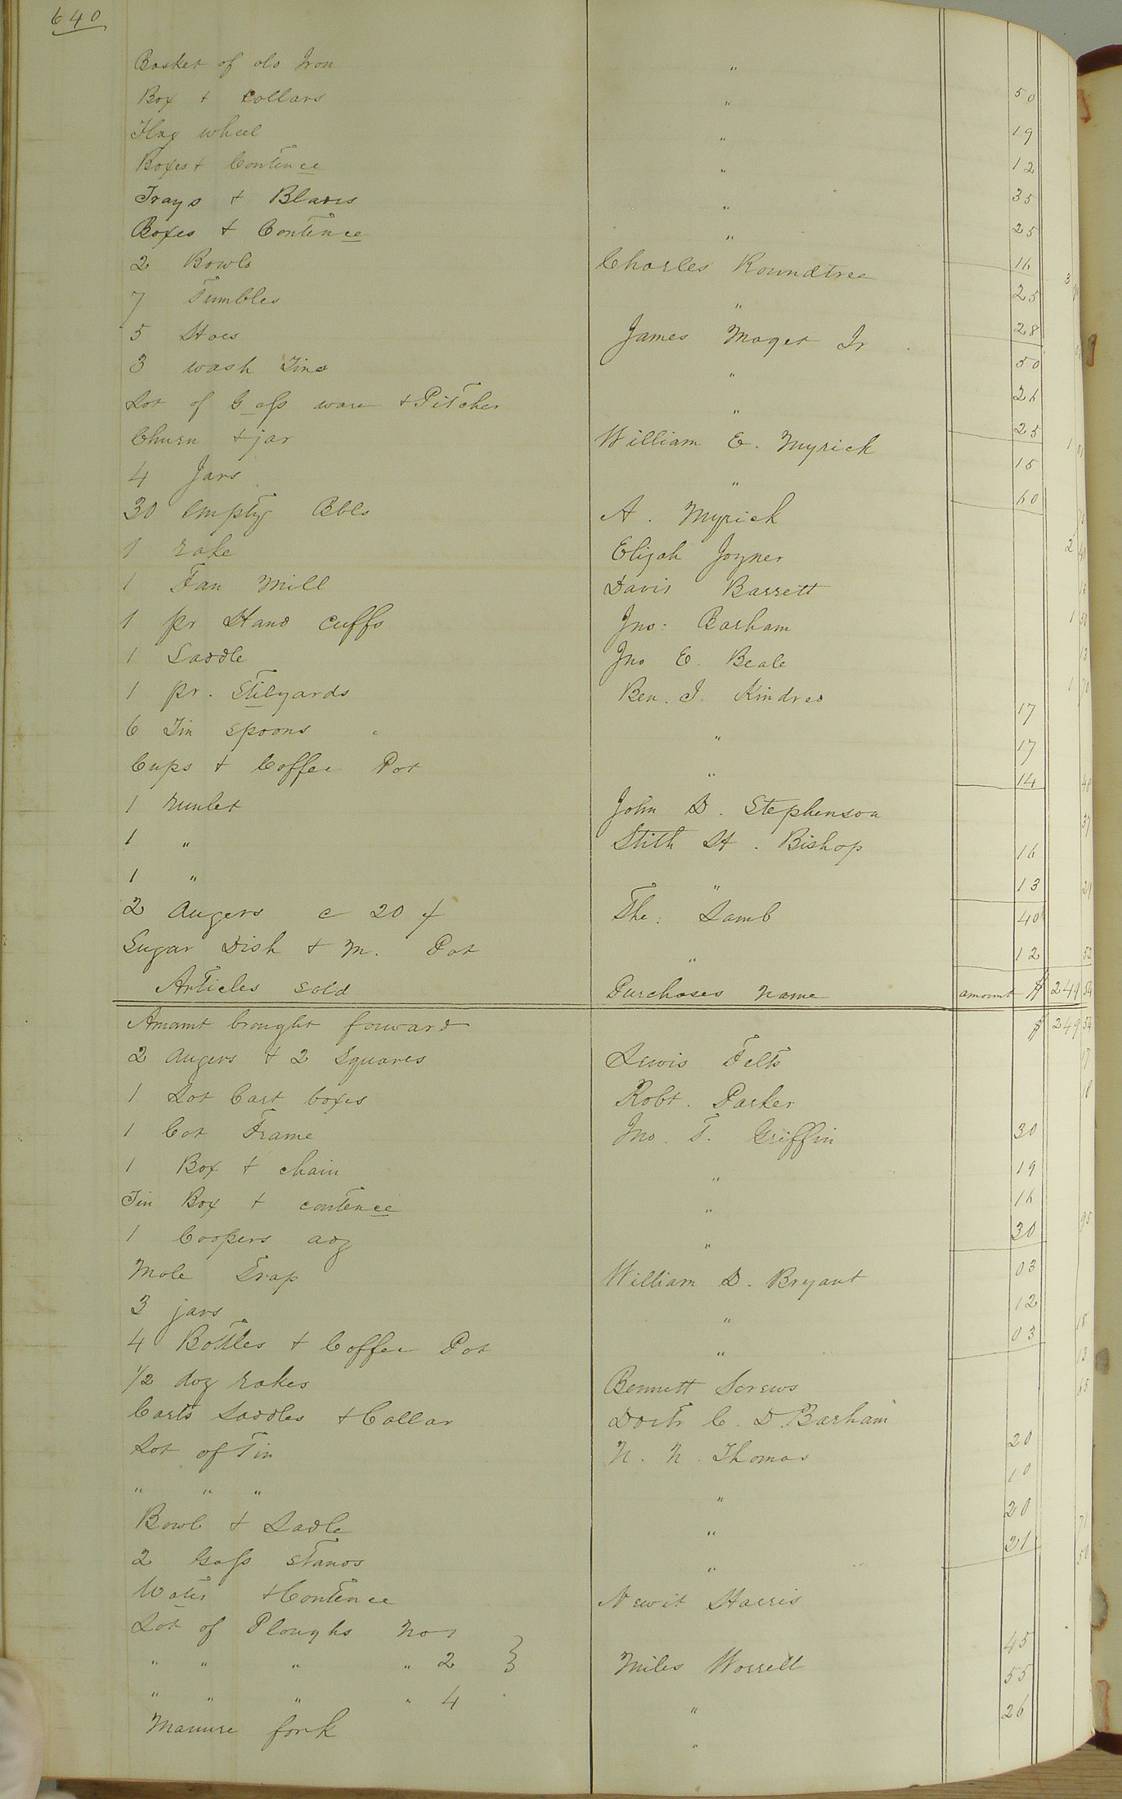 640
Basket of old Iron " 50
Box & Collars " 19
Flax wheel " 12
Boxes & Contence " 35
Trays & " 25
Boxes & Contence " 16
2 Bowls Charles Roundtree 25
7 Tumbles " 28
5 Hoes James Maget Jr 50
3 wash Tins " 26
Lot of ware & Pitcher " 25
Churn & jar William E. Myrick 15
4 Jars " 60
30 empty Bbls A. Myrick
1 rake Elijah Joyner
1 Fan Mill Davis Barrett
1 pr Hand cuffs Jno. Barham
1 Saddle Jno E. Beale
1 pr. Stilyards Ben. J. Kindred 17
6 Tin spoons " 17
Cups & Coffee Pot " 14
1 runlet John D. Stephenson
1 " Stith H. Bishop 16
1 " " 13
2 Augers c 20 f Tho. Lamb 40
Sugar Dish & M. Pot " 12 52
Articles sold Purchases name amount $ 249 54
Amount brought forward $ 249 54
2 Augers & 2 Squares Lewis Felts
1 Lot Cart boxes Robt. Parker
1 Cot Frame Jno. T. Griffin 30
1 Box & chain " 19
Tin Box & contence " 16
1 Coopers adz " 30 95
Mole Trap William D. Bryant 03
3 jars " 12
4 Bottles & Coffee Pot " 03
1/2 doz rakes Bennett Screws
Carts Saddles & Collar Doctr C. D. Barham
Lot of Tin N. N. Thomas 20
" " " " 10
Bowl & Ladle " 20
2 Glass stands " 21
& Contence Newit Harris
Lot of Ploughs No 1
" " " " 2 } Miles Worrell 45
" " " " 4 " 55
Manure fork " 26